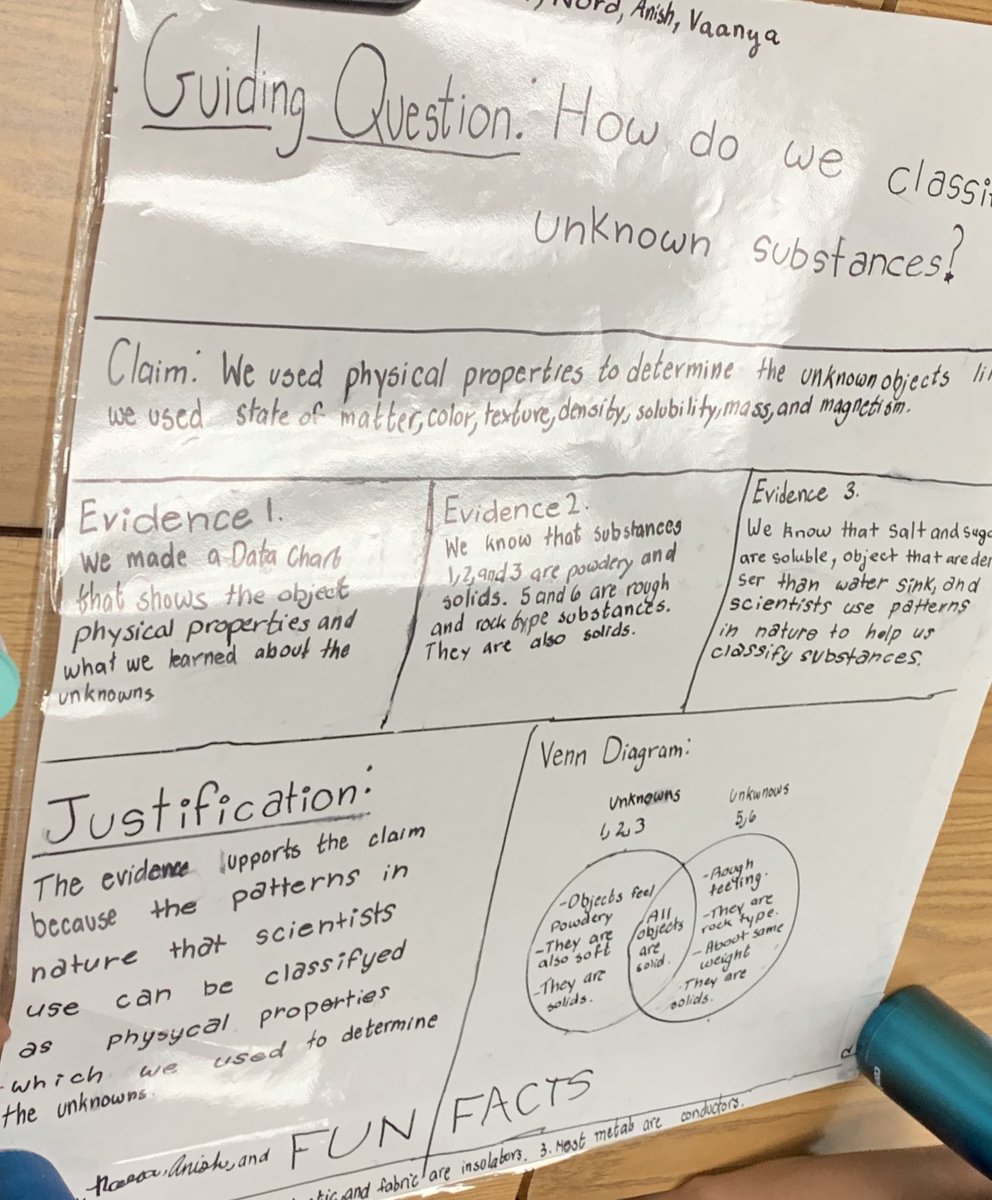 Nord, Anish, Vaanya
Guiding Question: How do we classi
unknown substances?
Claim: We used physical properties to determine the unknown objects li
we used state of matter, color, texture, density, solubility, mass, and magnetism.
Evidence 1.
We made a Data Chart
that shows the object
physical properties and
what we learned about the
unknowns
Evidence 2.
We know that substances
1, 2, and 3 are powdery and
solids. 5 and 6 are rough
and rock type substances.
They are also solids.
Evidence 3.
We know that salt and suga
are soluble, object that are den
ser than water sink, and
scientists use patterns
in nature to help us
classify substances.
Justification:
The evidence supports the claim
because the patterns in
nature that scientists
use can be classifyed
as physycal properties
which we used to determine
the unknowns.
Venn Diagram:
Unknowns
1, 2, 3
Unkwnows
5, 6
-Objects feel
Powdery
-They are
also soft
-They are
solids.
All
objects
are
solid.
-Rough
feeling.
-They are
rock type.
-About same
weight
-They are
solids.
FUN FACTS
Anish, and
and fabric are insolators. 3. Most metals are conductors.